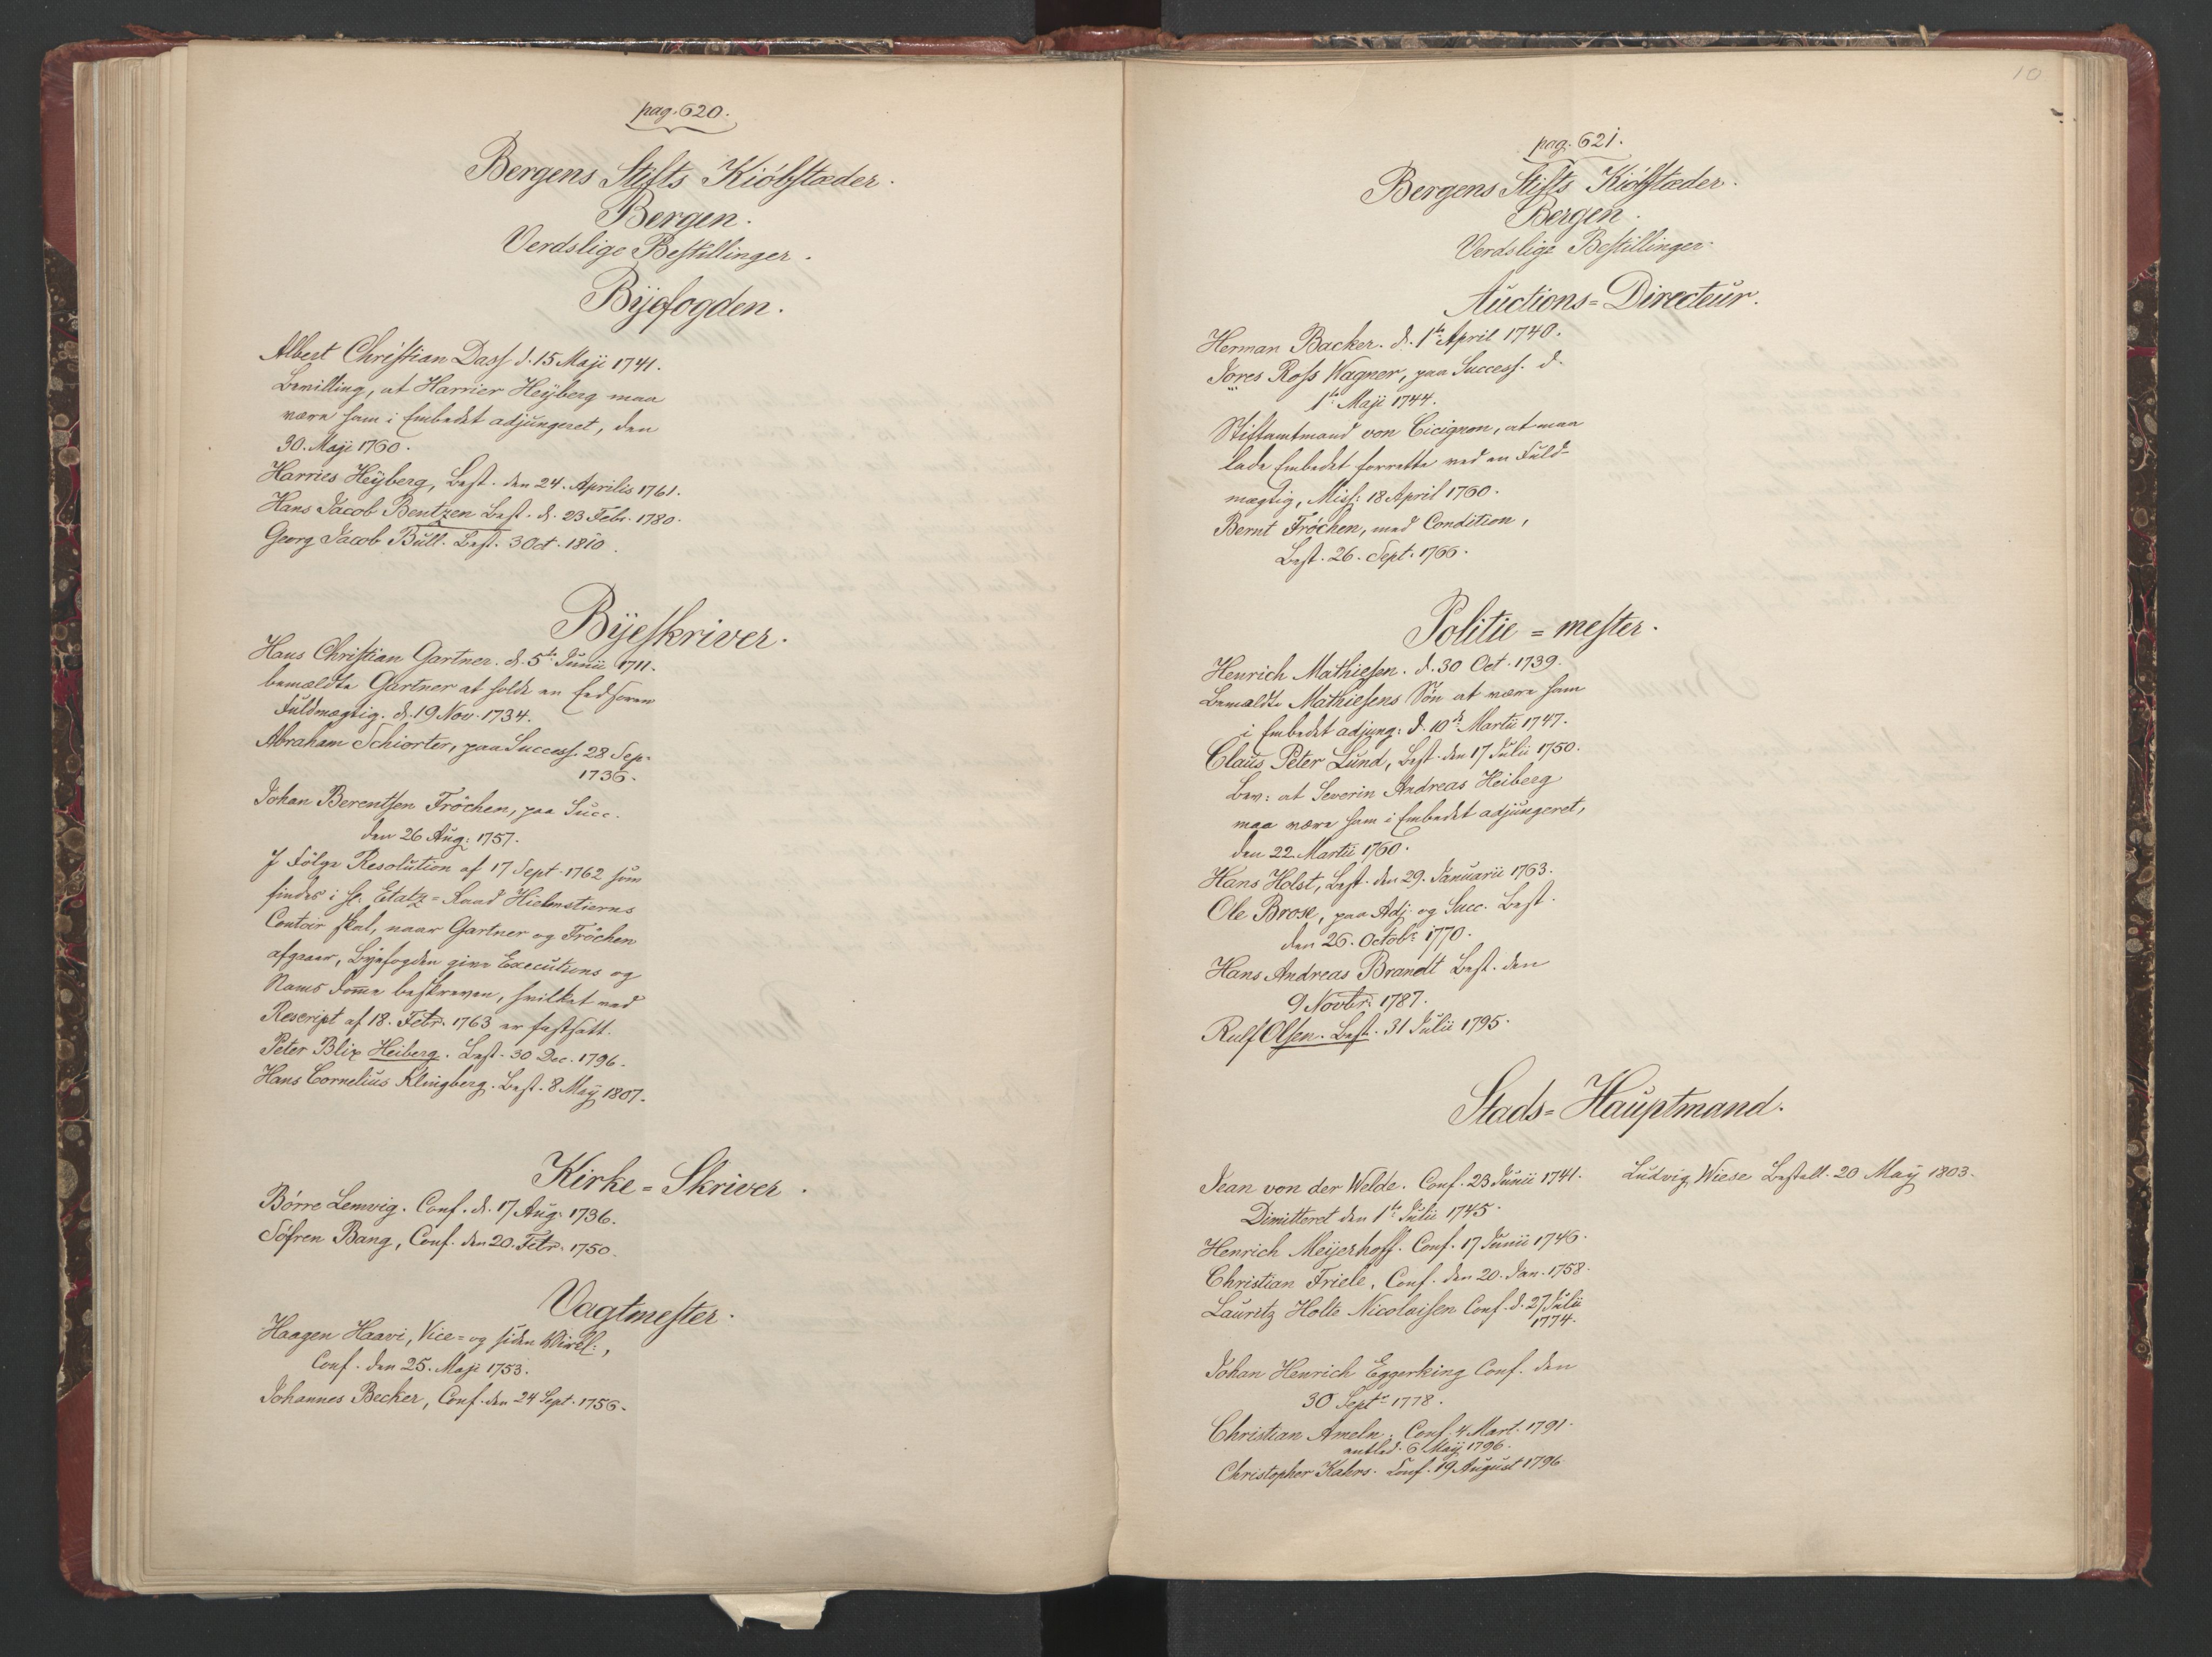 pag. 620.
Bergens Stifts Kiöbstæder.
Bergen.
Verdslige Bestillinger.
Byefogden.
Albert Christian Dass d. 15 Maji 1741.
Bevilling, at Harrier Heÿberg maa
være ham i Embedet adjungeret, den
30. Maji 1760.
Harries Heÿberg, Best. den 24. Aprilis 1761.
Hans Jacob Bentzen Best. d. 23 Febr. 1780.
Georg Jacob Bull. Best. 3 Oct. 1810.
Byeskriver.
Hans Christian Gartner. d. 5te Junii 1711.
bemældte Gartner at holde en Eedsoren
Fuldmægtig. d. 19 Nov. 1734.
Abraham Schiorter, paa Success. 28 Sep.
1736.
Johan Berentsen Fröchen, paa Succ.
den 26 Aug: 1757.
I Fölge Resolution af 17 Sept. 1762 som
findes i H. Etatz-Raad Hielmstierns
Contoir skal, naar Gartner og Fröchen
afgaaer, Byefogden give Executions og
Nams Domme beskreven, hvilket ved
Rescript af 18. Febr. 1763 er fastsatt.
Peter Blix Heiberg. Best. 30 Dec. 1796.
Hans Cornelius Klingberg. Best. 8 Maÿ 1807.
Kirke=Skriver.
Börre Lemvig. Conf. d. 17 Aug. 1736.
Söfren Bang, Conf. den 20. Febr. 1750.
Vagtmester.
Haagen Haavi, Vice= og siden Wirel:,
Conf. den 25. Maji 1753.
Johannes Becker, Conf. den 24 Sept. 1756.
10
pag. 621.
Bergens Stifts Kiöbstæder.
Bergen.
Verdslige Bestillinger
Auctions=Directeur.
Herman Backer. d. 1te April 1740.
Jores Ross Wagner, paa Success. d.
1te Maji 1744.
Stiftamtmand von Cicignon, at maa
lade Embedet forrette ved en Fuld=
mægtig, Miss: 18 April 1760.
Bernt Fröchen, med Condition,
Best. 26. Sept. 1766.
Politie=mester.
Henrich Mathiesen. d. 30 Oct. 1739.
Bemældte Mathiesens Sön at være ham
i Embedet adjung: d. 10de Martii 1747.
Claus Peter Lund, Best. den 17 Julii 1750.
Bev: at Severin Andreas Heiberg
maa være ham i Embedet adjungeret,
den 22. Martii 1760.
Hans Holst, Best. den 29. Januarii 1763.
Ole Brose, paa Adj. og Succ. Best.
den 26. Octobr 1770.
Hans Andreas Brandt Best. den
9 Novbr: 1787.
Rulf Olsen. Best. 31 Julii 1795.
Stads=Hauptmand.
Jean von der Welde. Conf. 23 Junii 1741.
Dimitteret den 1te Julii 1745.
Henrich Meyerhoff. Conf. 17 Junii 1746.
Christian Friele, Conf. den 20. Jan. 1758.
Lauritz Holte Nicolaisen Conf. d. 27 Julii
1774.
Johan Henrich Eggerking Conf. den
30 Septr 1778.
Christian Ameln. Conf. 4 Mart. 1791.
entled. 6 Maÿ 1796.
Christopher Kahrs. Conf. 19 August 1796
Ludvig Wiese Bestall. 20 Maÿ 1803.